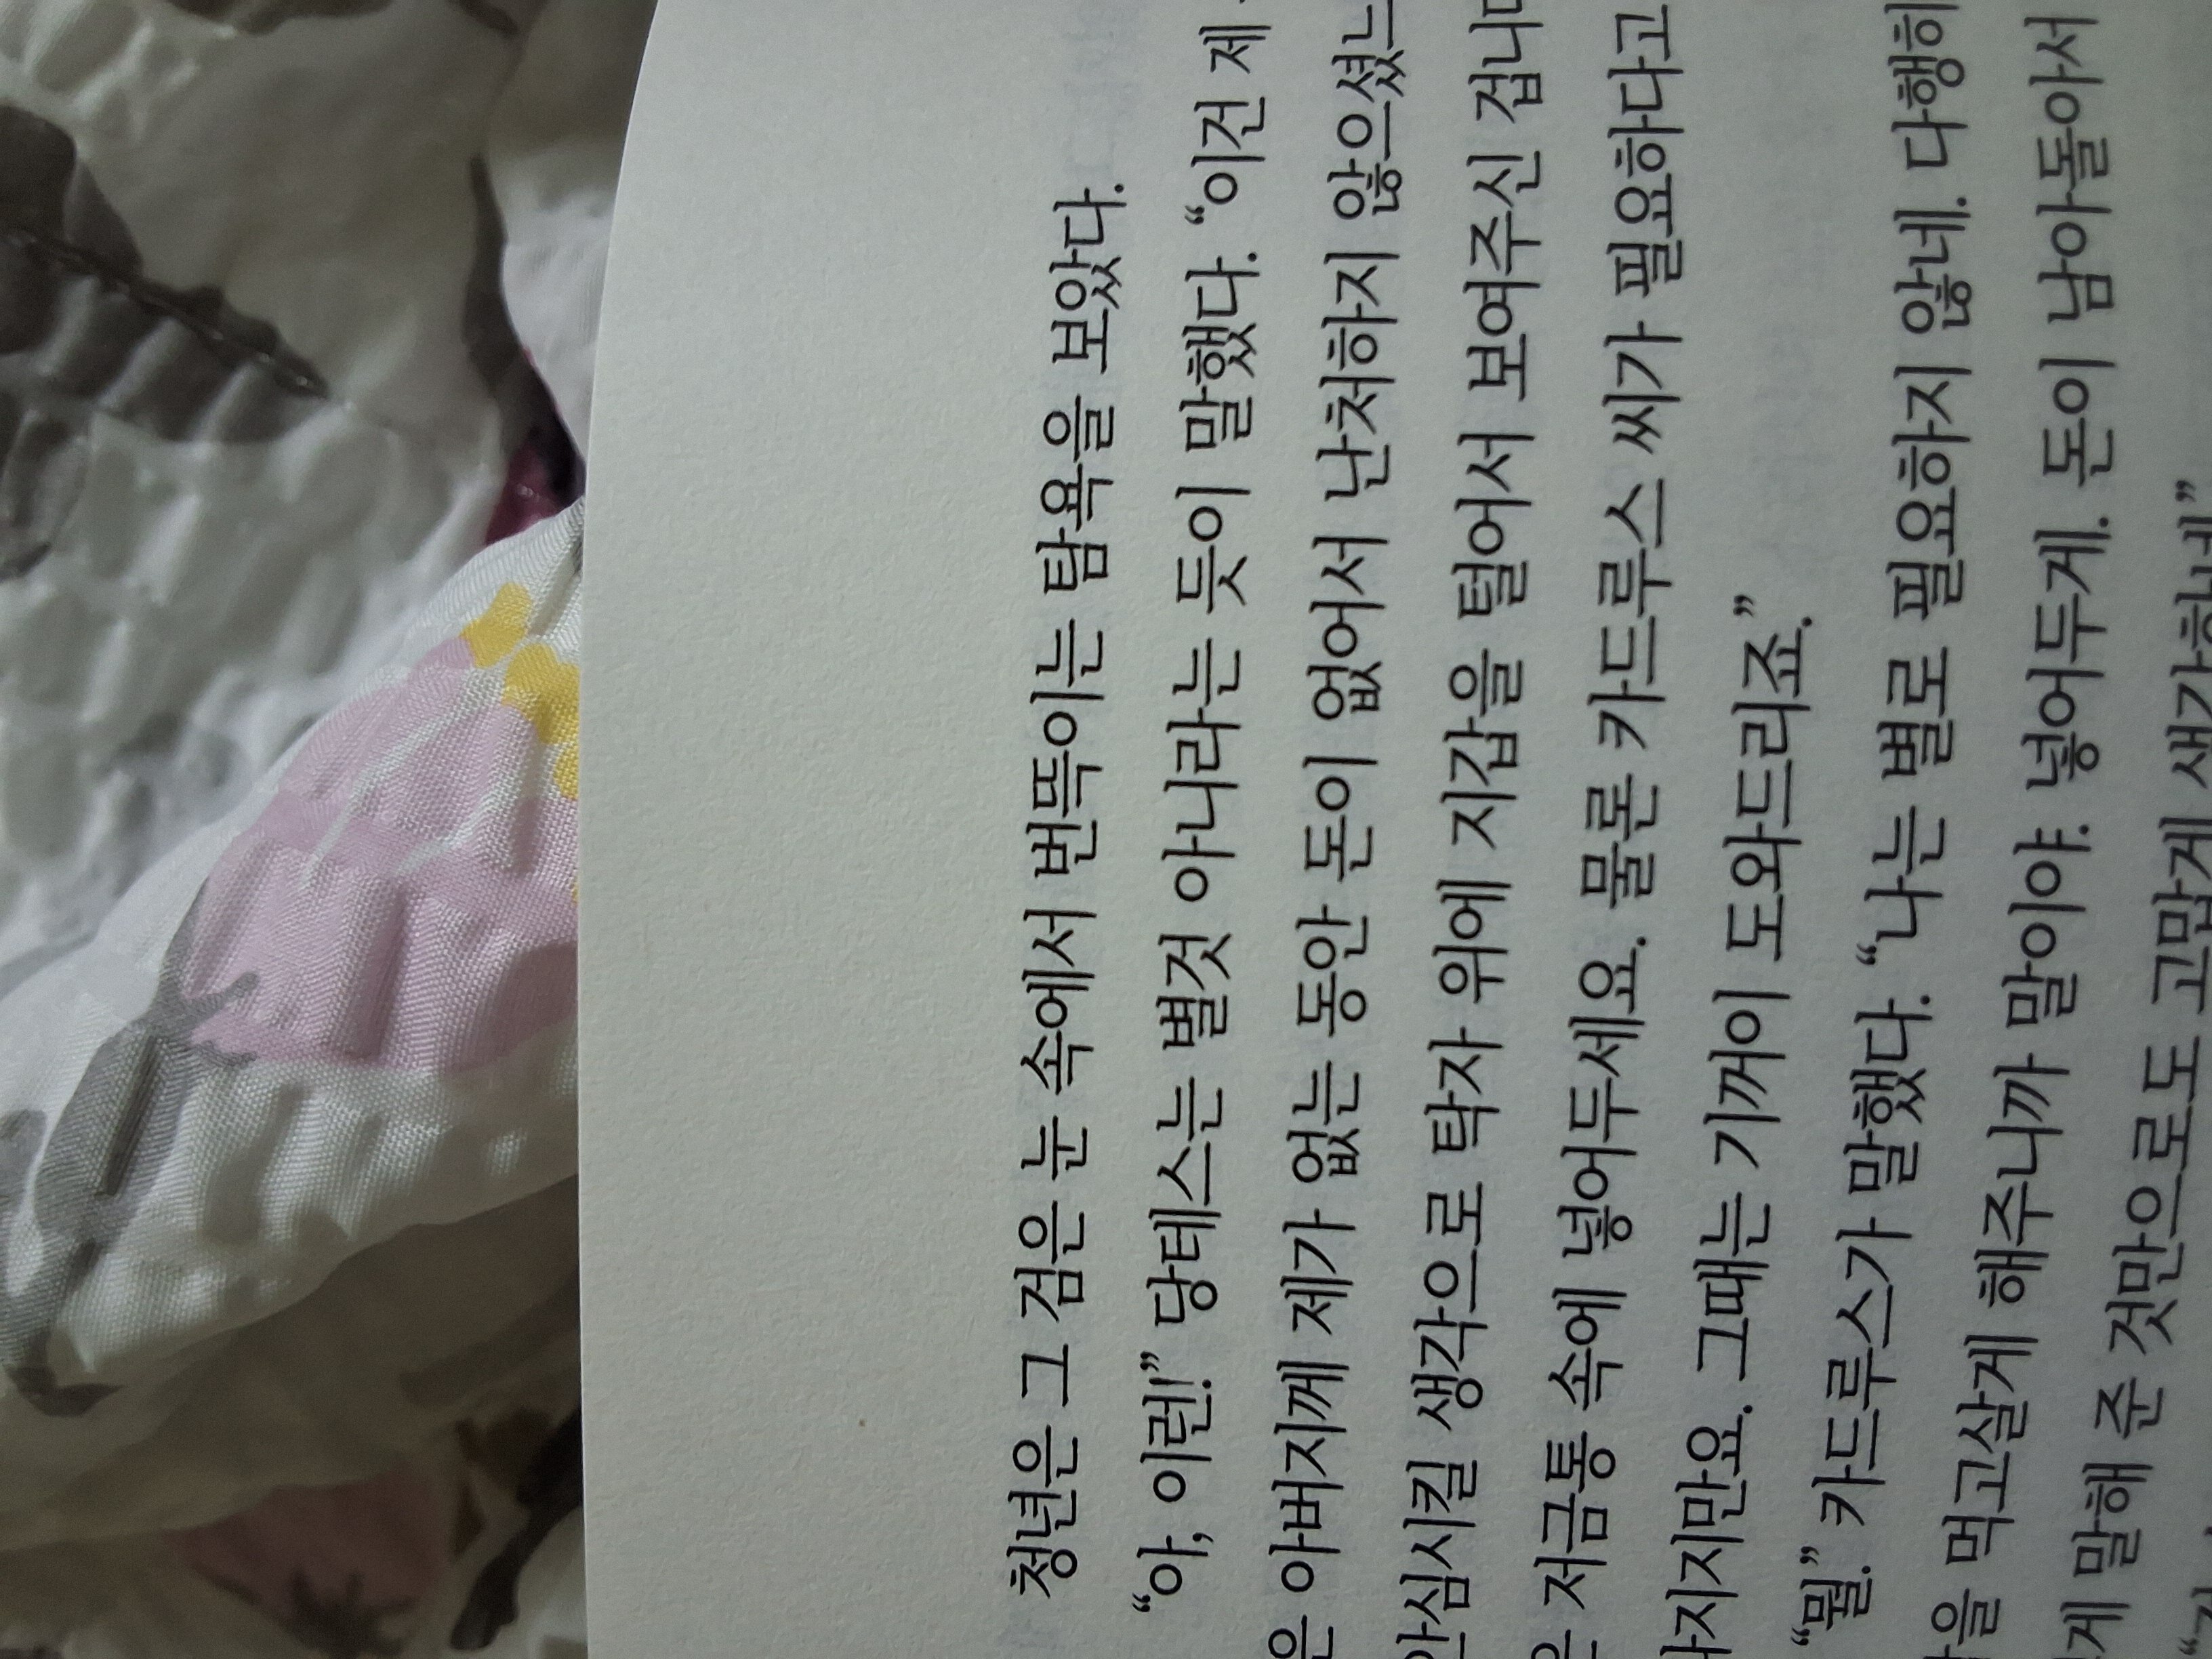 청년은 그 검은 눈 속에서 번뜩이는 탐욕을 보았다.
“아, 이런!” 당테스는 별것 아니라는 듯이 말했다. “이건 제
은 아버지께 제가 없는 동안 돈이 없어서 난처하지 않으셨느
안심시킬 생각으로 탁자 위에 지갑을 털어서 보여주신 겁니다
저금통 속에 넣어두세요. 물론 카드루스 씨가 필요하다고
지만요. 그때는 기꺼이 도와드리죠.”
“뭘.” 카드루스가 말했다. “나는 별로 필요하지 않네. 다행히
을 먹고살게 해주니까 말이야. 넣어두게. 돈이 남아돌아서
게 말해 준 것만으로도 고맙게 생각하네”